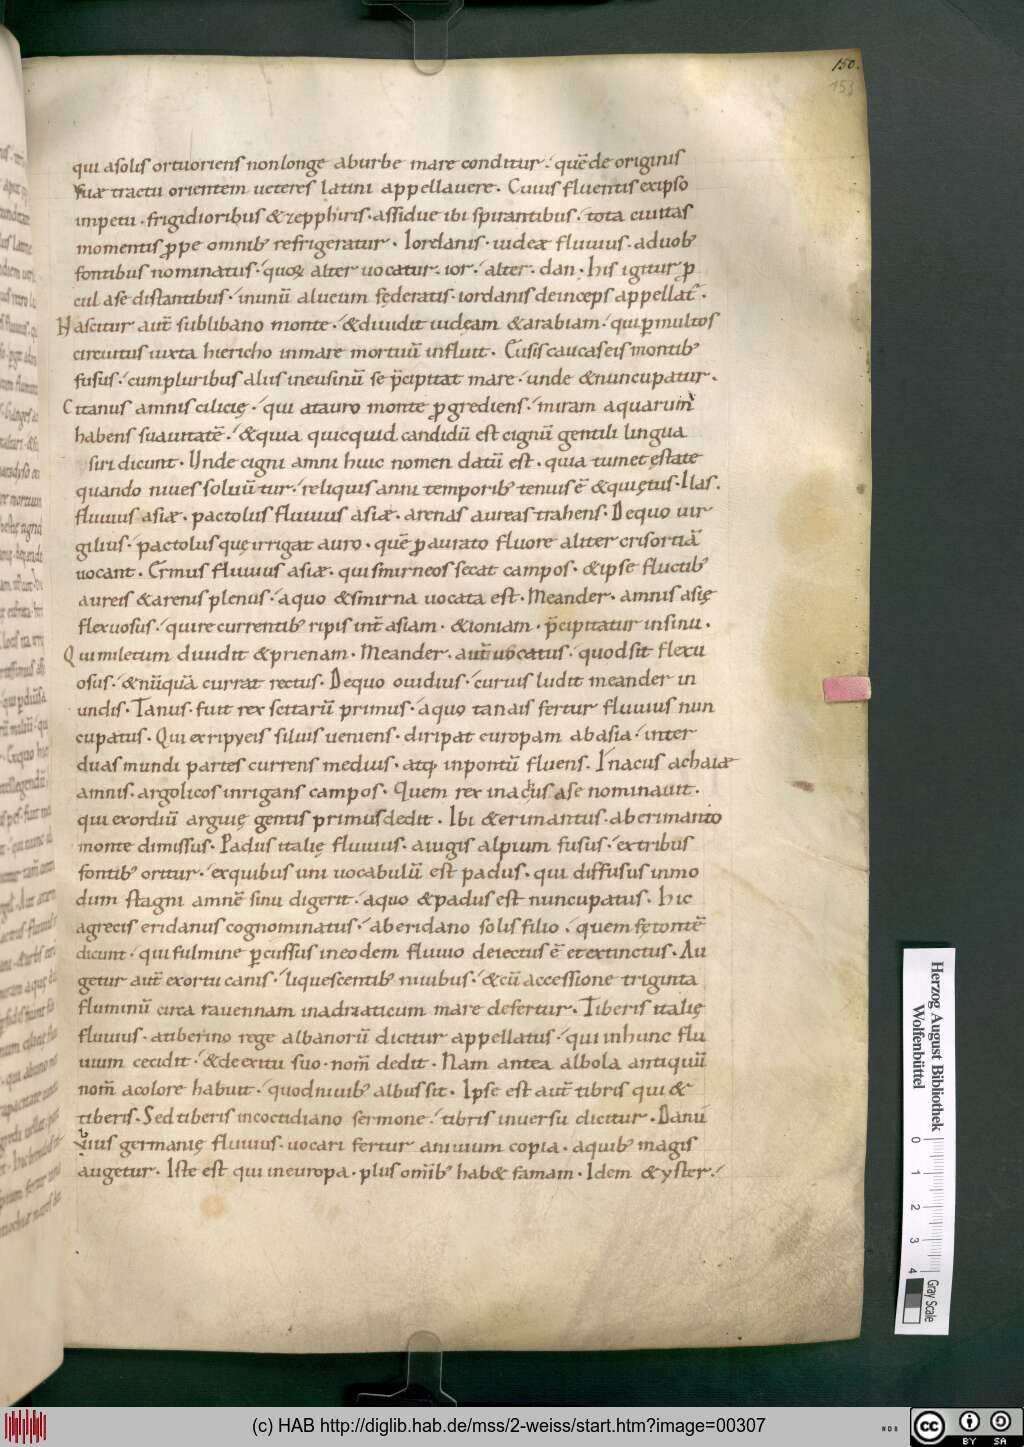 150.
153
qui asolis ortuoriens nonlonge aburbe mare conditur. quē de originis
suæ tractu orientem ueteres latini appellauere. Cuius fluentis exipso
impetu. frigidioribus & zepphiris. assidue ibi spirantibus. tota ciuitas
momentis ꝓpe omnibꝰ refrigeratur. Iordanis. iudeæ fluuius. aduobꝰ
fontibus nominatus. quoꝝ alter uocatur. ior. alter. dan. his igitur ꝓ
cul ase distantibus. inunū alueum fęderatis. iordanis deinceps appellat̄.
Nascitur aut̄ sublibano monte. & diuidit iudęam & arabiam. qui ꝑmultos
circuitus iuxta hiericho inmare mortuū influit. Eusis caucaseis montibꝰ
fusus. cumpluribus aliis ineusinū se p̄cipitat mare. unde & nuncupatur.
Citanus amnis cilicię. qui atauro monte ꝓgrediens. miram aquarum
habens suauitatē. & quia quicquid candidū est cignū gentili lingua
siri dicunt. Unde cigni amni huic nomen datū est. quia tumet ęstate
quando niues soluūtur. reliquis anni temporibꝰ tenuis ē & quiętus. Ilas.
fluuius asiæ. pactolus fluuius asiæ. arenas aureas trahens. Dequo uir
gilius. pactolusquę irrigat auro. quē ꝓ aurato fluore aliter crisortiā
uocant. Ermus fluuius asiæ. qui smirneos secat campos. & ipse fluctibꝰ
aureis & arenis plenus. aquo & smirna uocata est. Meander. amnis asię
flexuosus. quirecurrentibꝰ ripis int̄ asiam. & ioniam. p̄cipitatur insinū.
Qui miletum diuidit & prienam. Meander. aut̄ uocatus. quodsit flexu
osus. & nūquā currat rectus. Dequo ouidius. curuis ludit meander in
undis. Tanus. fuit rex scitarū primus. aquo tanais fertur fluuius nun
cupatus. Qui exripyeis siluis ueniens. diripat europam abasia. inter
duas mundi partes currens medius. atqꝫ inpontū fluens. Inacus achaiæ
amnis. argolicos inrigans campos. Quem rex inachus ase nominauit.
qui exordiū arguię gentis primus dedit. Ibi & erimantus. aberimanto
monte dimissus. Padus italię fluuius. aiugis alpium fusus. extribus
fontibꝰ oritur. exquibus uni uocabulū est padus. qui diffusus inmo
dum stagni amnē sinu digerit. aquo & padus est nuncupatus. hic
agrecis eridanus cognominatus. aberidano solis filio. quem fętontē
dicunt. qui fulmine ꝑcussus ineodem fluuio deiectus ē et extinctus. Au
getur aut̄ exortu canis. liquescentibꝰ niuibus. & cū accessione triginta
fluminū circa rauennam inadriaticum mare defertur. Tiberis italię
fluuius. atiberino rege albanorū dicitur appellatus. qui inhunc flu
uium cecidit. & deexitu suo. nom̄ dedit. Nam antea albola antiquū
nom̄ acolore habuit. quod niuibꝰ albus sit. Ipse est aut̄ tibris qui &
tiberis. Sed tiberis incoctidiano sermone. tibris inuersu dicitur. Danu
uius germanię fluuius. uocari fertur aniuium copia. aquibꝰ magis
augetur. Iste est qui ineuropa. plus om̄ibꝰ hab& famam. Idem & yster.
Herzog August Bibliothek
Wolfenbüttel
0 1 2 3 4
Gray Scale
(c) HAB http://diglib.hab.de/mss/2-weiss/start.htm?image=00307
WDB
cc
BY SA